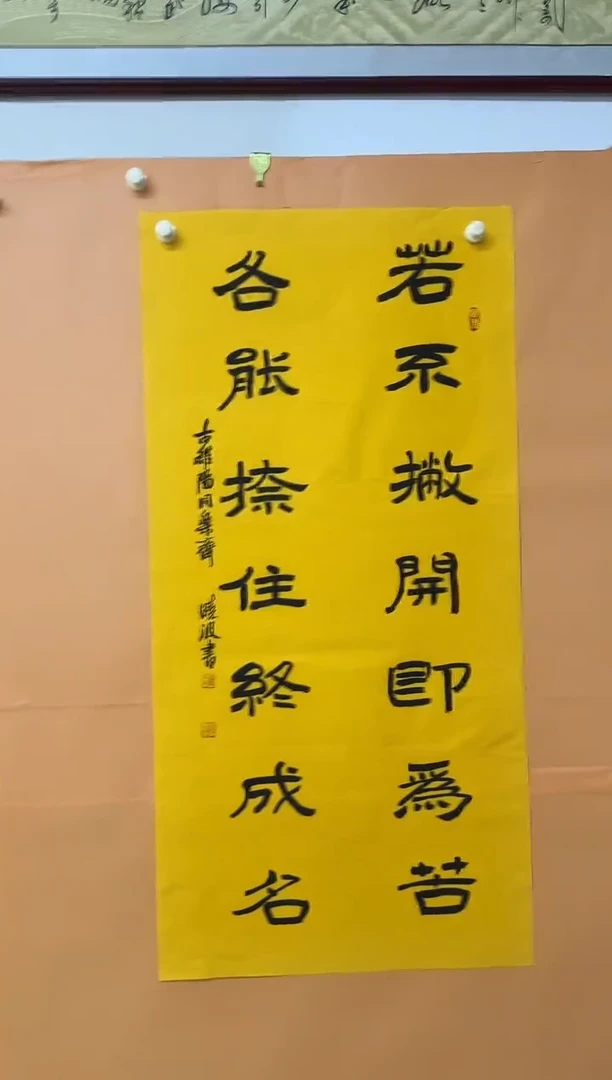 若不撇開即爲苦
各能捺住終成名
古雒陽
曉波書